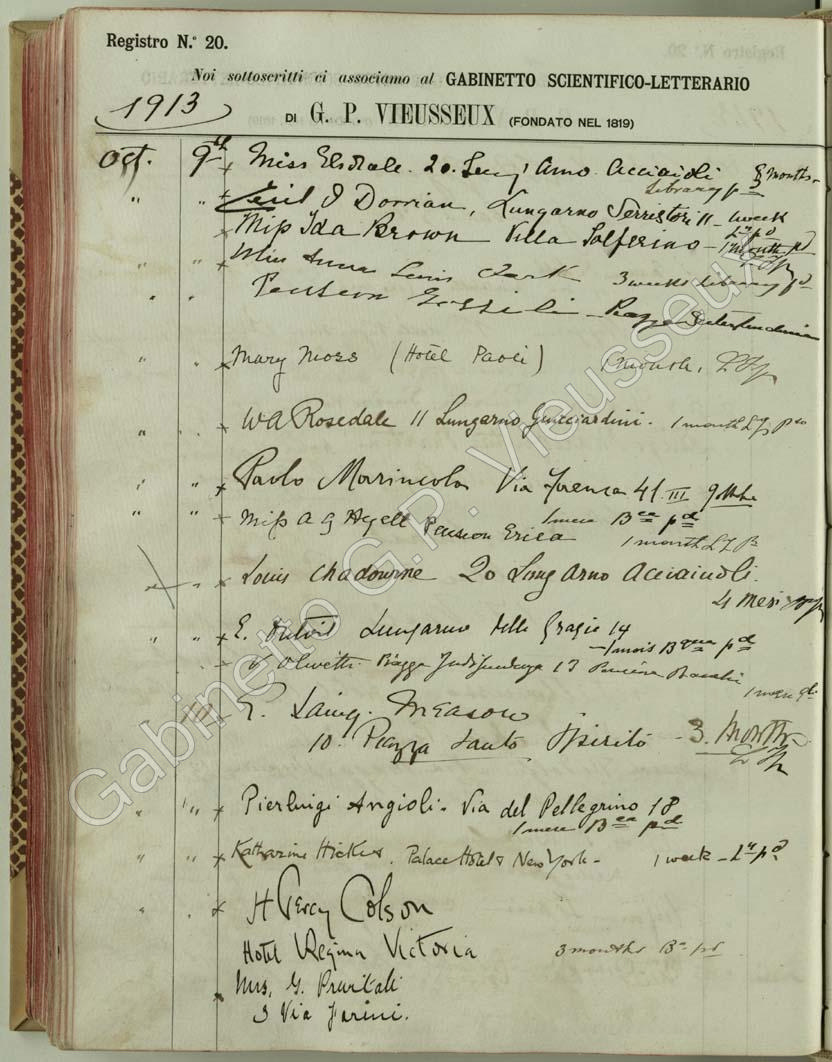 Registro N.º 20.
Noi sottoscritti ci associamo al GABINETTO SCIENTIFICO-LETTERARIO
1913
DI G. P. VIEUSSEUX (FONDATO NEL 1819)
Oct. 9th Miss Elsdale. 20. Lung' Arno. Acciaioli 8 months -
Library pd
" " Cecil I Dorrian, Lungarno Serristori 11 - 1 week
Ly pd
Miss Ida Brown Villa Solferino - 1 month pd
" " Miss Anna Lewis Clark 3 weeks Library pd
" " Pension - Piazza Indipendenza
" " Mary Moss (Hotel Paoli) 1 month,
" " W A Rosedale 11 Lungarno Guicciardini. 1 month
" " Paolo Marincola Via Faenza 41 III
1 mese Bca pd
" " Miss A G Pension Erica
1 month
" " Louis Chadourne 20 Lung Arno Acciaiuoli.
4 Mesi
" " E. Dutoit Lungarno delle Grazie 14
- 1 mois pd
" Olivetti. Piazza Indipendenza 13 Pensione
1 mese
" 10. Laing. Meason
10. Piazza Santo Spirito - 3. Months
" " Pierluigi Angioli. Via del Pellegrino 18
1 mese Bca pd
" " Katharine Hickes. Palace Hotel & New York - 1 week - Ly pd
" " H Percy Colson
Hotel Regina Victoria 3 months Bca pd
Mrs. G.
3 Via Farini.
Gabinetto G.P. Vieusseux